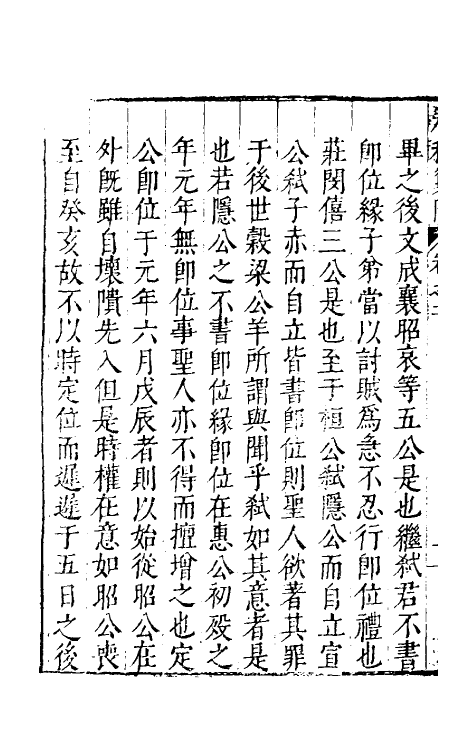 畢之後文成襄昭哀等五公是也繼弑君不書
卽位緣子弟當以討賊爲急不忍行卽位禮也
莊閔僖三公是也至于桓公弑隱公而自立宣
公弑子赤而自立皆書卽位則聖人欲著其罪
于後世穀梁公羊所謂與聞乎弑如其意者是
也若隱公之不書卽位緣卽位在惠公初殁之
年元年無卽位事聖人亦不得而擅增之也定
公卽位于元年六月戊辰者則以始從昭公在
外旣雖自壞隤先入但是時權在意如昭公喪
至自癸亥故不以時定位而遲遲于五日之後